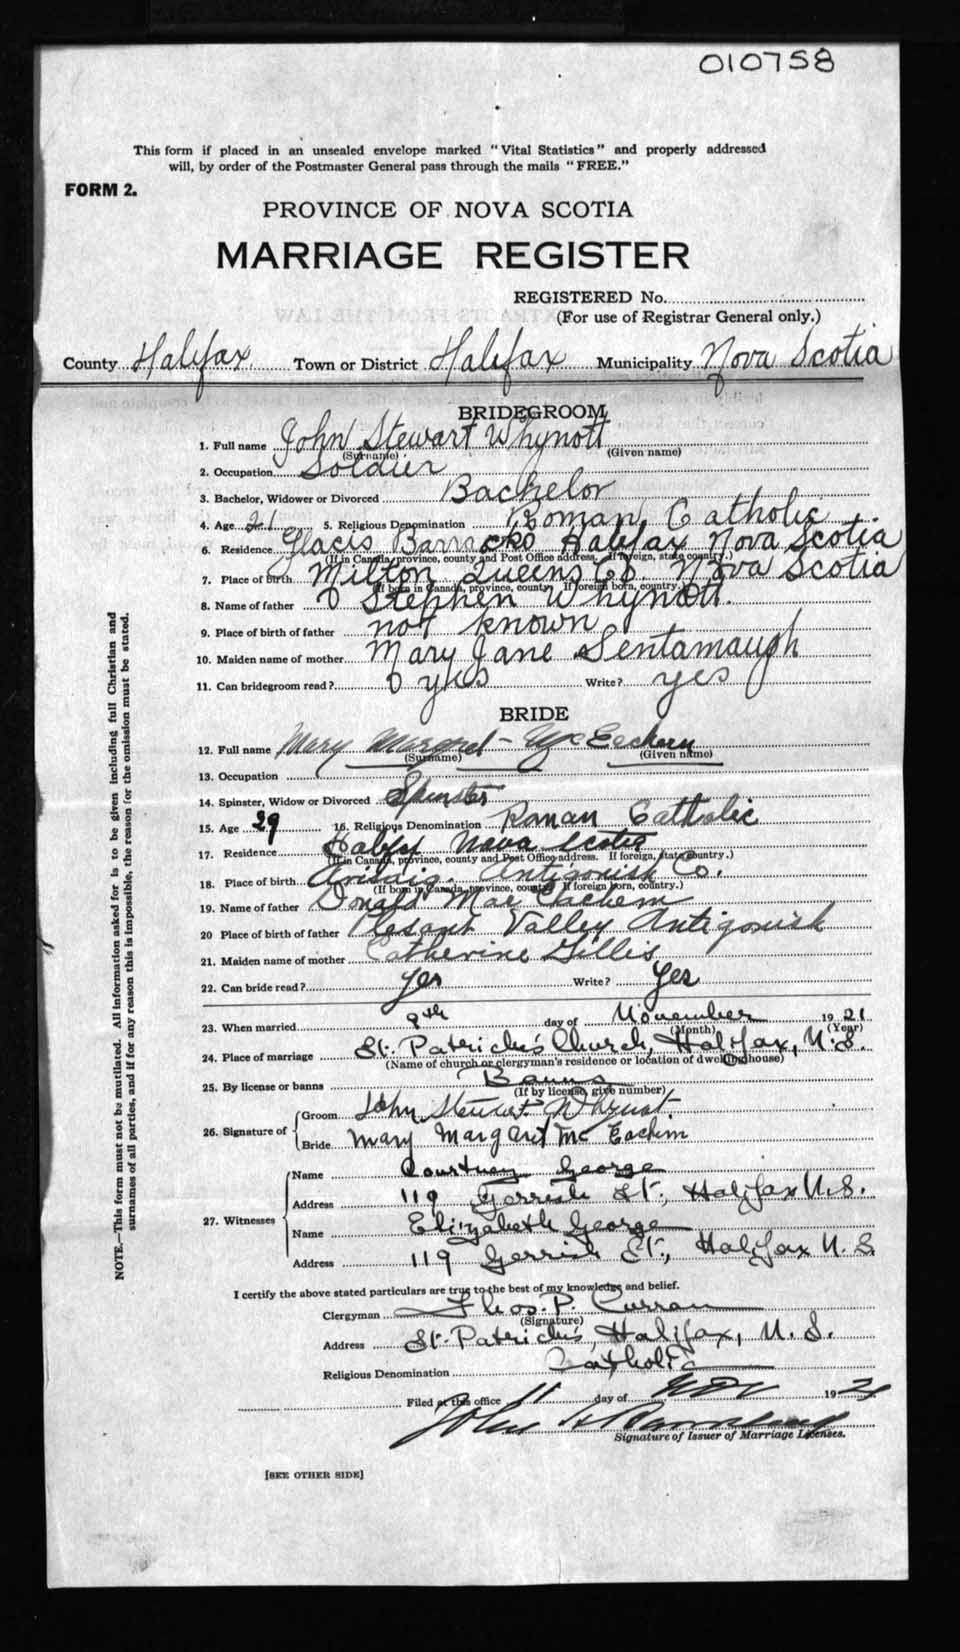 010758
This form if placed in an unsealed envelope marked "Vital Statistics" and properly addressed
will, by order of the Postmaster General pass through the mails "FREE."
FORM 2.
PROVINCE OF NOVA SCOTIA
MARRIAGE REGISTER
REGISTERED No.
(For use of Registrar General only.)
County Halifax Town or District Halifax Municipality Nova Scotia
BRIDEGROOM
1. Full name John Stewart Whynott
(Surname) (Given name)
2. Occupation Soldier
3. Bachelor, Widower or Divorced Bachelor
4. Age 21 5. Religious Denomination Roman Catholic
6. Residence Glacis Barracks Halifax Nova Scotia
(If in Canada, province, county and Post Office address. If foreign, state country.)
7. Place of birth Milton Queens Co. Nova Scotia
(If born in Canada, province, county. If foreign born, country.)
8. Name of father Stephen Whynott.
9. Place of birth of father not known
10. Maiden name of mother Mary Jane Sentamaugh
11. Can bridegroom read? yes Write? yes
BRIDE
12. Full name Mary Margret McEachern
(Surname) (Given name)
13. Occupation
14. Spinster, Widow or Divorced Spinster
15. Age 29 16. Religious Denomination Roman Catholic
17. Residence Halifx Nova Scotia
(If in Canada, province, county and Post Office address. If foreign, state country.)
18. Place of birth Arisaig, Antigonish Co.
(If born in Canada, province, county If foreign born, country.)
19. Name of father Donald MacEachern
20 Place of birth of father Plesant Valley Antigonish
21. Maiden name of mother Catherine Gillis
22. Can bride read? yes Write? Yes
23. When married 9th day of November 1921
(Month) (Year)
24. Place of marriage St. Patrick's Church, Halifax, N.S.
(Name of church or clergyman's residence or location of dwelling house)
25. By license or banns Banns
(If by license, give number)
26. Signature of Groom John Stewart Whynot.
Bride Mary Margaret McEachern
27. Witnesses Name Courtney George
Address 119 Gerrish St., Halifax N.S.
Name Elizabeth George
Address 119 Gerrish St., Halifax N.S.
I certify the above stated particulars are true to the best of my knowledge and belief.
Clergyman Thos. P. Curran
(Signature)
Address St. Patrick's Halifax, N.S.
Religious Denomination Catholic
Filed at this office 11 day of Nov 1921
John
Signature of Issuer of Marriage Licenses.
[SEE OTHER SIDE]
NOTE.—This form must not be mutilated. All information asked for is to be given including full Christian and
surnames of all parties, and if for any reason this is impossible, the reason for the omission must be stated.